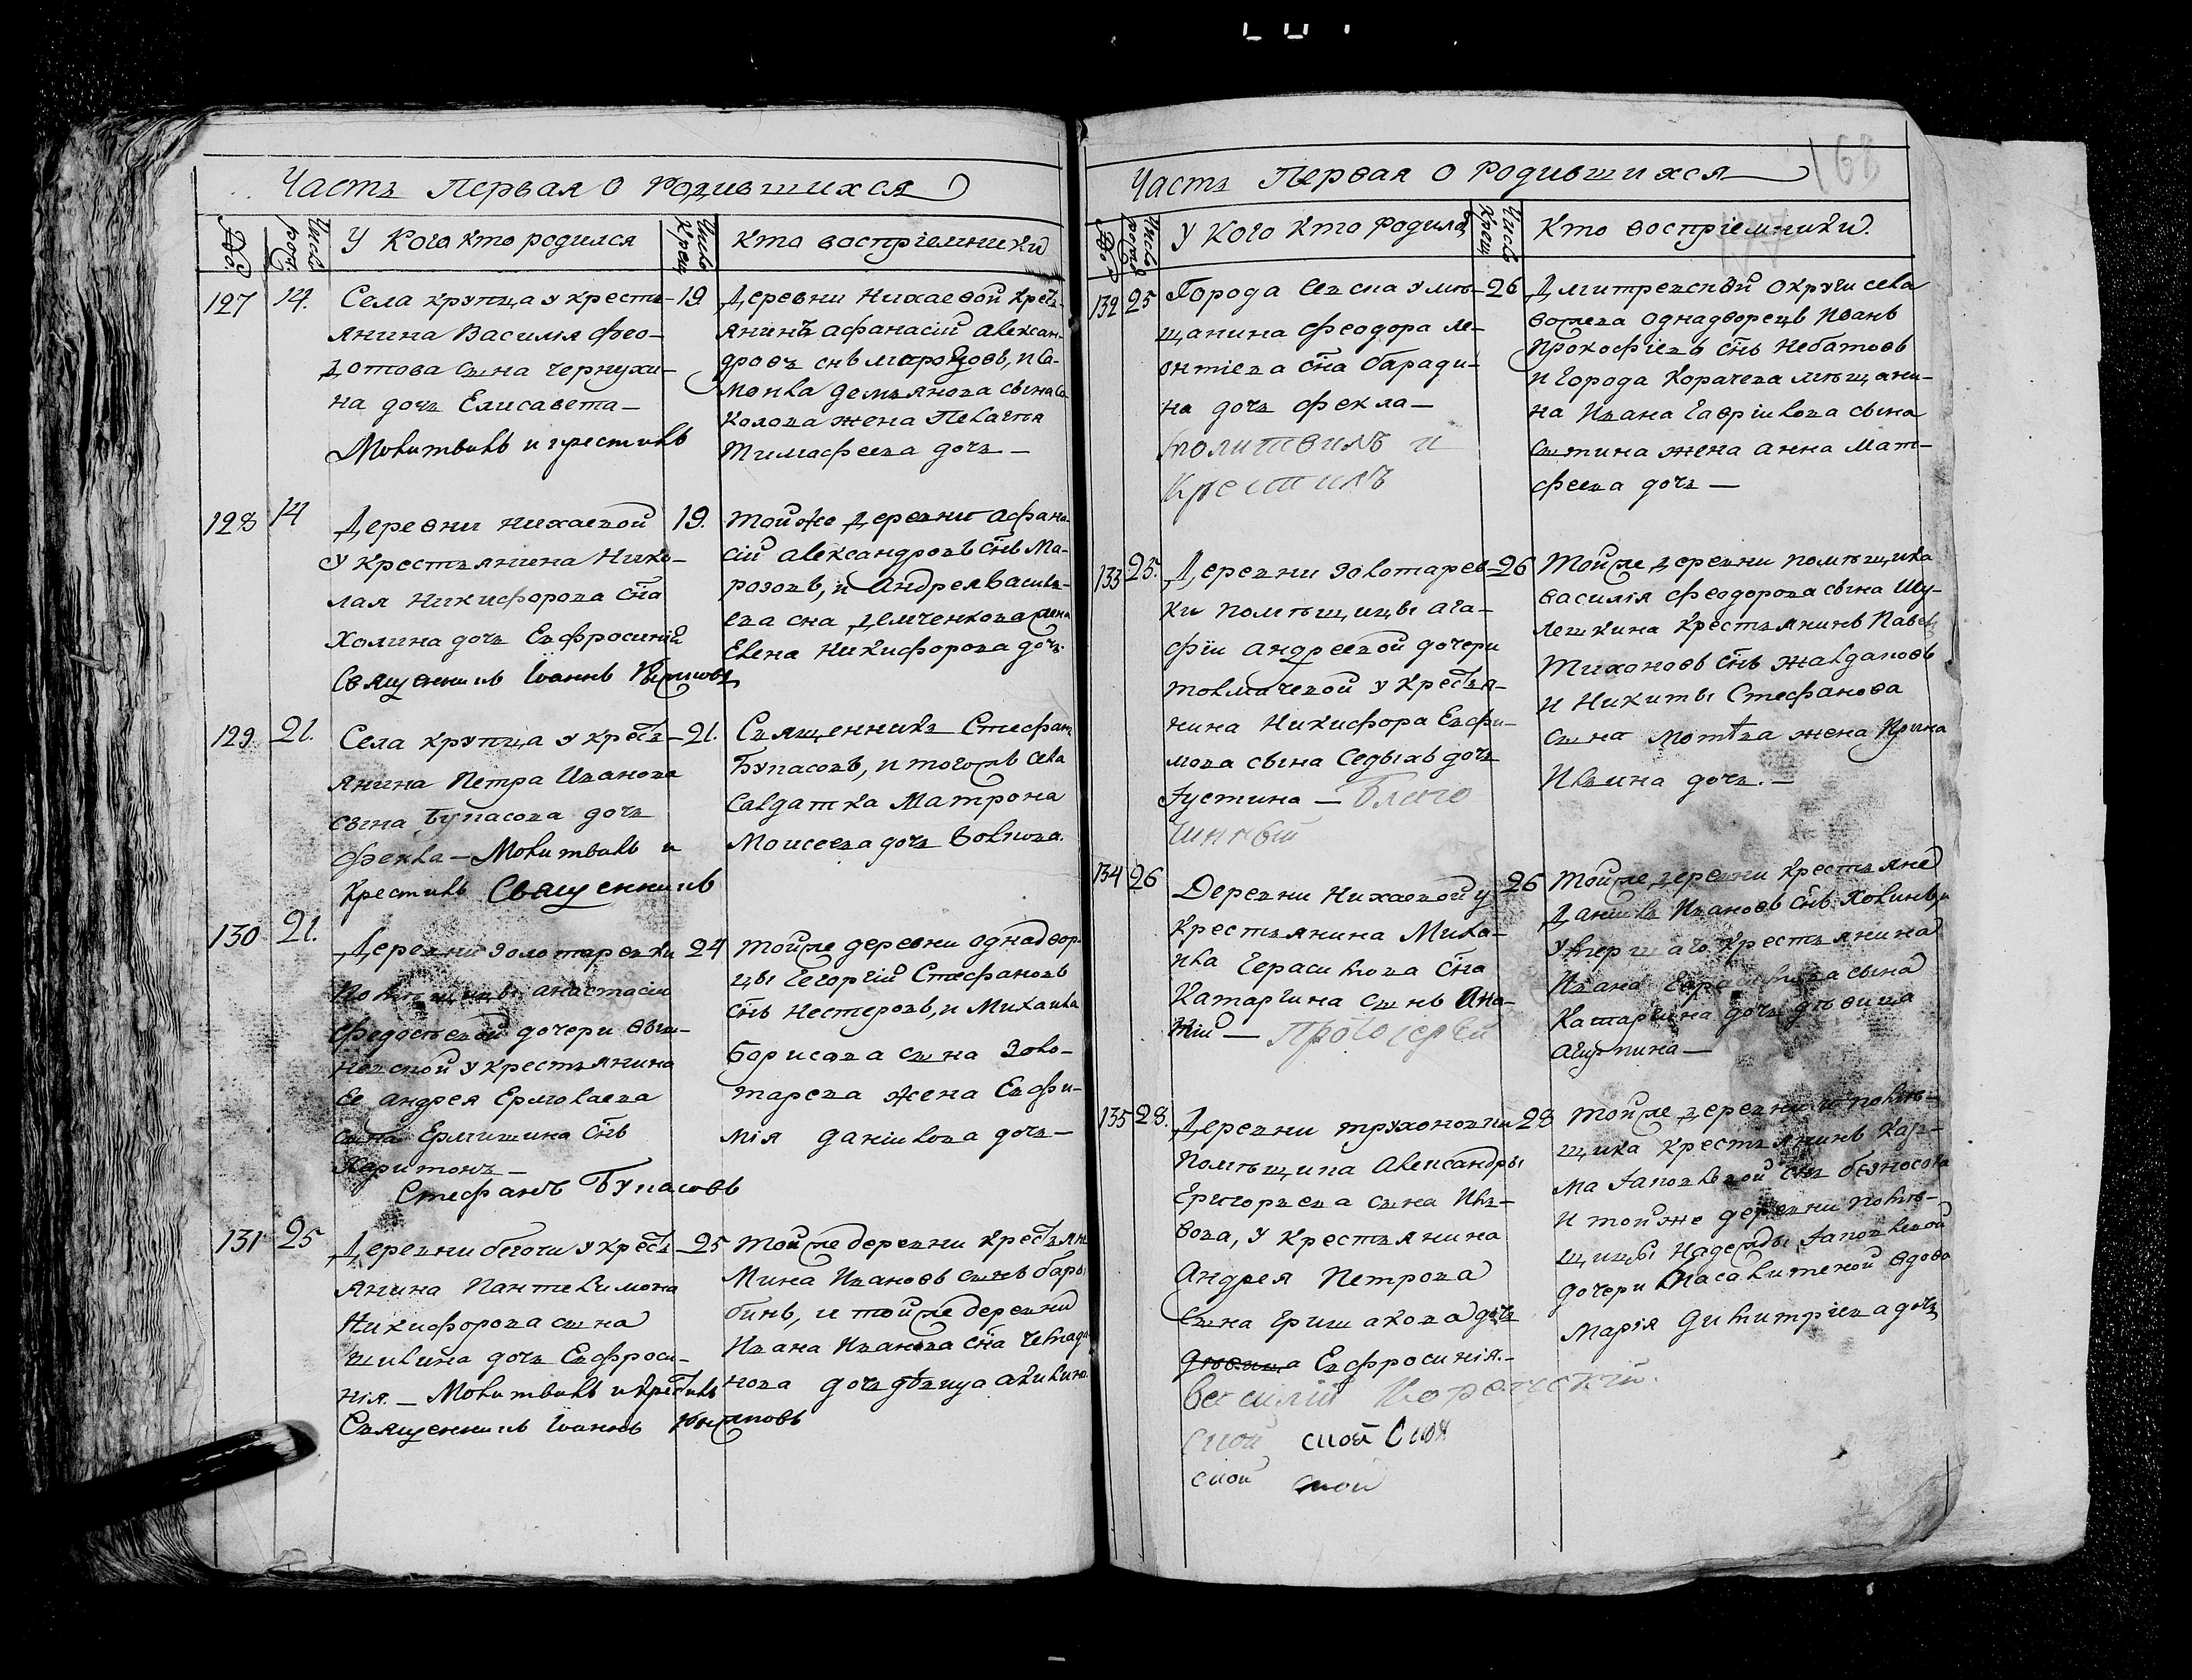 Часть Первая о Родившихся
№
Число рожд.
У Кого кто родился
Число Крещ.
Кто восприемники
127
14.
Села крупца у кресть-
янина Василия Фео-
дотова сына чернухи-
на дочь Елисавета —
Молитвилъ и крестилъ
19
Деревни Нихаевой Кресть-
янинъ афанасий алексан-
дровъ снъ морозовъ, и Са-
мойла демьянова сына Со-
колова жена Пелагия
Тимофеева дочь —
128
14
Деревни нихаевой
У крестьянина Нико-
лая никифорова сна
Холина дочь Евфросиний
Священникъ Иоаннъ
19.
тойже Деревни афана-
сий александровъ снъ Мо-
розовъ, и андрея василь-
ева сна демченкова жена
Елена никифорова дочь
129
21.
Села крупца у крест-
янина Петра Иванова
сына Бупасова дочь
Фекла — Молитвилъ и
крестилъ Священникъ
21.
Священникъ Стефанъ
Бупасовъ, и тогожъ села
салдатка Матрона
Моисеева дочь волкова.
130
21.
Деревни золотаревки
Помещицы анастасии
федосеевой дочери
у крестьянина
Ее андрея Ермолаева
сына Ермишина снъ
Харитонъ —
Стефанъ Бупасовъ
24
тойже деревни однадвор-
цы Георгий Стефановъ
снъ нестеровъ, и Михаила
Борисова сына Золо-
тарева жена Евфи-
мия данилова дочь —
131
25
Деревни бегочи у крест-
янина Пантелимона
Никифорова сына
Шилина дочь Евфроси-
ния. — Молитвилъ и крестилъ
Священникъ Иоаннъ
25
тойже деревни крестьян
Мина Ивановъ сынъ бары-
бинъ, и тойже деревни
Ивана Иванова сна
нова дочь девица акилина
Часть Первая о Родившихся
168
№
Число рожд.
У Кого Кто родился
Число Крещ.
Кто восприемники.
132
25
Города Севска у мѣ-
щанина феодора ле-
онтиева сна баради-
на дочь фекла —
молитвилъ и
крестилъ
26
Дмитревской округи села
однадворецъ Иванъ
Прокофиевъ снъ небатовъ
и города Корачева мѣщани-
на Ивана гаврилова сына
сытина жена анна мат-
феева дочь —
133
25.
Деревни золотарев-
ки помѣщицы ага-
фии андреевой дочери
толмачевой у крестья-
нина никифора Евфи-
мова сына Седыхъ дочь
Иустина — Благо
чинный
26
тойже деревни помѣщика
василия феодорова сына Шу-
лешкина крестьянинъ Павелъ
Тихоновъ снъ жалдаковъ
и Никиты Стефанова
сына Мотѣва жена Ирина
Ильина дочь. —
134
26
Деревни Нихаевой у
крестьянина Миха-
ила Герасимова сна
Катаргина сынъ Ана-
ний — Протоиерей
26
тойже деревни крестьяне
Данилъ Ивановъ снъ Холинъ, и
умершаго крестьянина
Ивана Герасимова сына
Катаргина дочь дѣвица
агрипина —
135
28.
Деревни трухоновки
помѣщика александры
григорьева сына Иль-
вова, у крестьянина
андрея Петрова
сына гришакова дочь
дѣвица Евфросиния. —
василий
28
тойже деревни и помѣ-
щика крестьянинъ Кар-
снъ безносова
и тойже деревни помѣ-
щицы надежды
дочери вдова
Мария димитриева дочь
сиой сиой Сиоя
сиой сиой